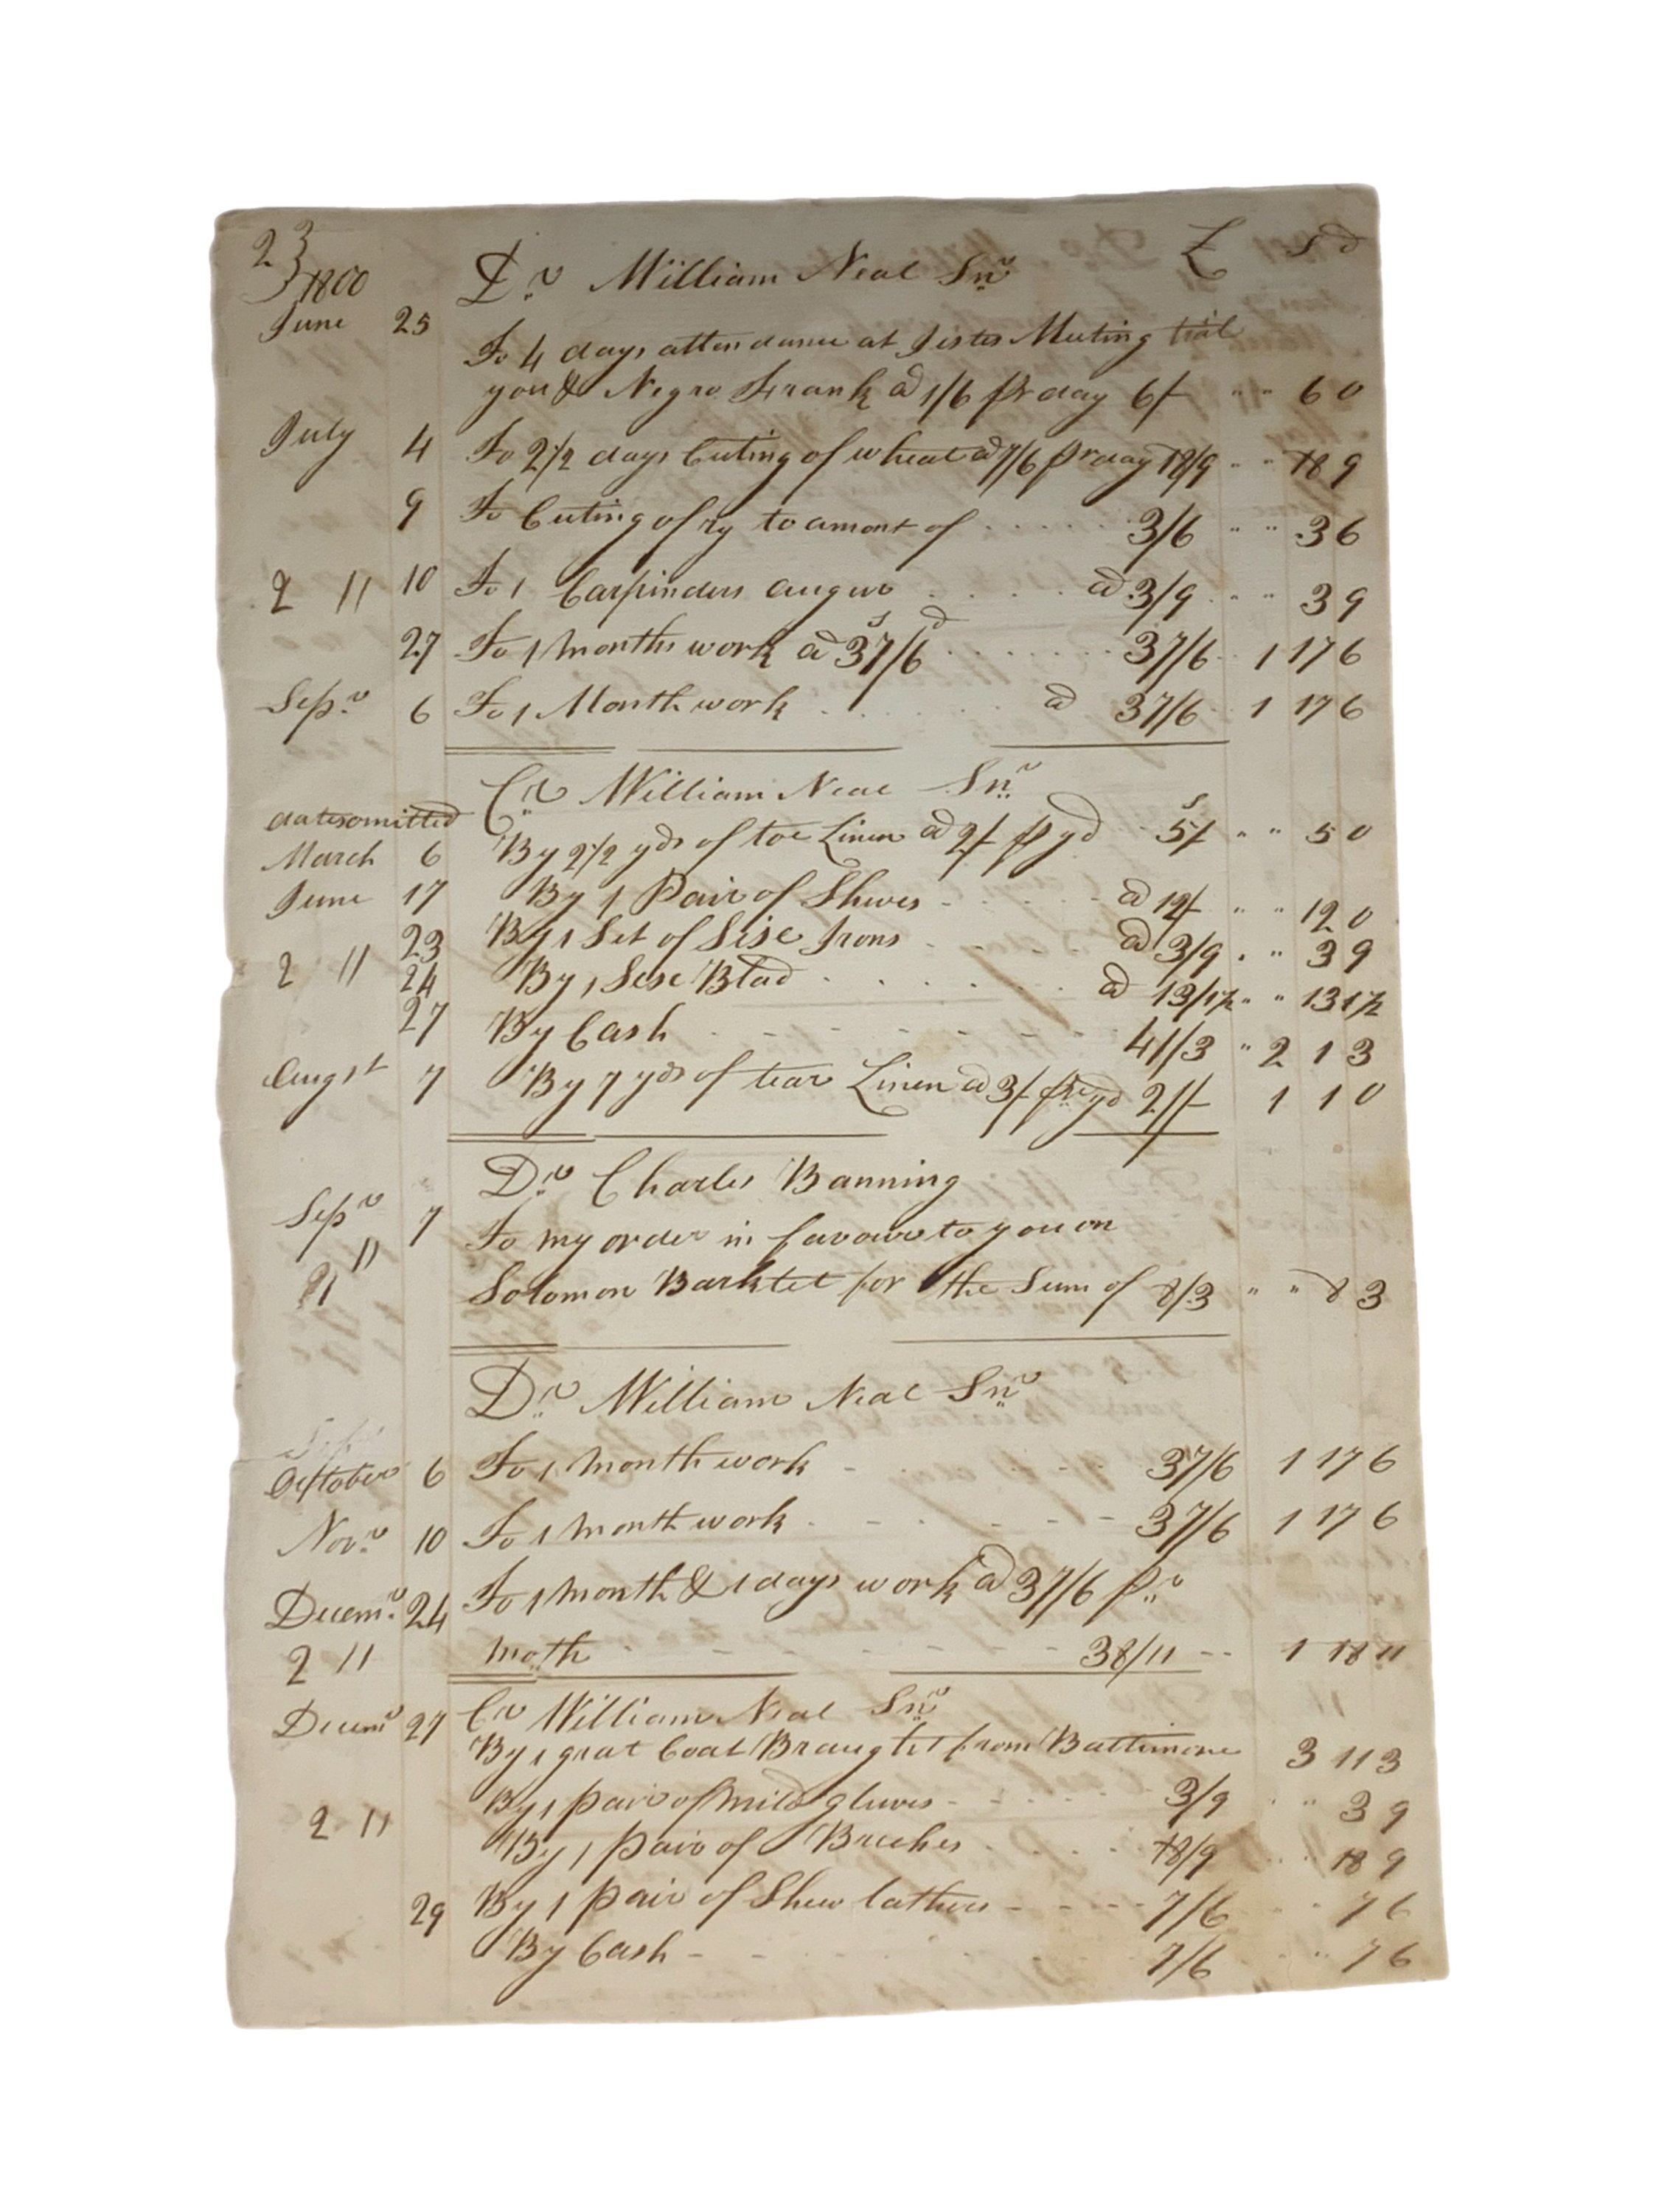 23
1800 Dr William Neal Snr £ s d
June 25 To 4 days attendance at Jistes Meeting trial
you & Negro Frank ad 1/6 pr day 6/ " " 6 0
July 4 To 2 1/2 days Cuting of wheat ad 7/6 pr day 18/9 " " 18 9
9 To Cuting of ry to amont of 3/6 " " 3 6
2 11 10 To 1 Carpinders auguer ad 3/9 " " 3 9
27 To 1 months work ad 37/6 37/6 1 17 6
Sepr 6 To 1 Month work ad 37/6 1 17 6
Cr William Neal Snr
datesomitted
March 6 By 2 1/2 yds of toe Linen ad 2/ p yd 5/ " " 5 0
June 17 By 1 Pair of Shues ad 12/ " " 12 0
23 By 1 Set of Sise Irons ad 3/9 " " 3 9
2 11 24 By 1 Sese Blad ad 13/1 1/2 " " 13 1 1/2
27 By Cash 41/3 " 2 1 3
Augst 7 By 7 yds of tear Linen ad 3/ pr yd 21/ 1 1 0
Dr Charles Banning
Sepr 7 To my order in favour to you on
21 11 Solomon Barktet for the Sum of 8/3 " " 8 3
Dr William Neal Snr
October 6 To 1 month work 37/6 1 17 6
Novr 10 To 1 month work 37/6 1 17 6
Decemr 24 To 1 month & 1 days work ad 37/6 pr
2 11 moth 38/11 1 18 11
Decemr 27 Cr William Neal Snr
By 1 grat Coat Braught from Baltimore 3 11 3
2 11 By 1 pair of mild gluves 3/9 " " 3 9
By 1 pair of Breches 18/9 18 9
29 By 1 pair of Shew lathers 7/6 7 6
By Cash 7/6 " 7 6